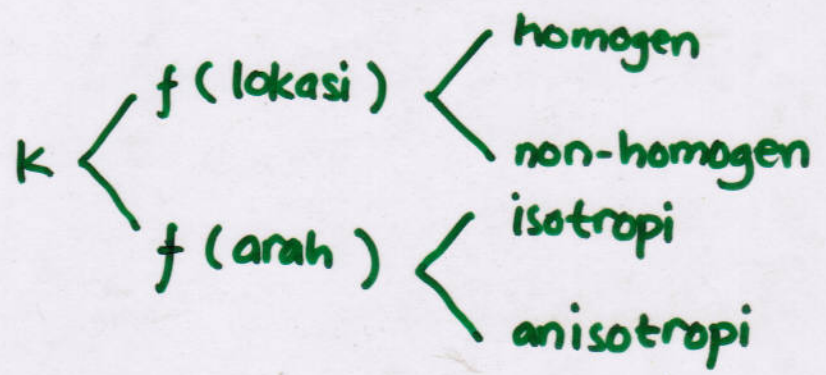 K
f (lokasi)
homogen
non-homogen
f (arah)
isotropi
anisotropi